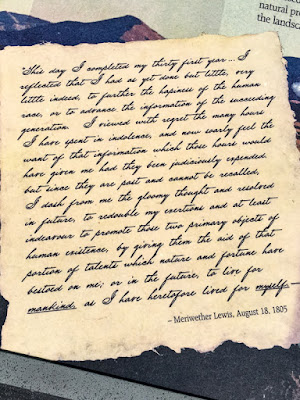 natural pr
the landsca
"This day I completed my thirty first year... I
reflected that I had as yet done but little, very
little indeed, to further the hapiness of the human
race, or to advance the information of the succeeding
generation. I viewed with regret the many hours
I have spent in indolence, and now soarly feel the
want of that information which those hours would
have given me had they been judiciously expended.
but since they are past and cannot be recalled,
I dash from me the gloomy thought and resolved
in future, to redouble my exertions and at least
indeavour to promote those two primary objects of
human existence, by giving them the aid of that
portion of talents which nature and fortune have
bestoed on me; or in the future, to live for
mankind, as I have heretofore lived for myself.—
– Meriwether Lewis, August 18, 1805